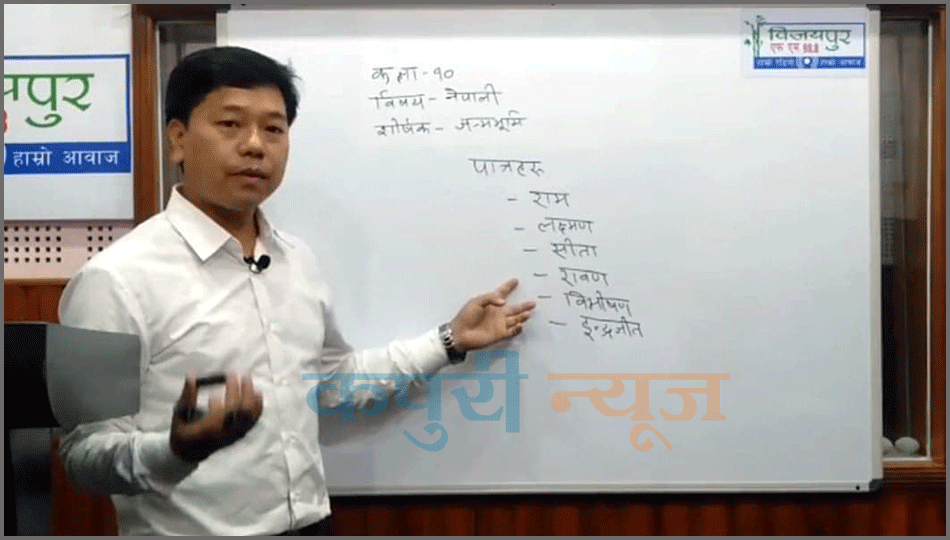 पुर
हाम्रो आवाज
विजयपुर
एफ एम 98.8
कक्षा - १०
विषय - नेपाली
शीर्षक - जन्मभूमि
पात्रहरू
- राम
- लक्ष्मण
- सीता
- रावण
- विभीषण
- इन्द्रजीत
कपुरी न्यूज